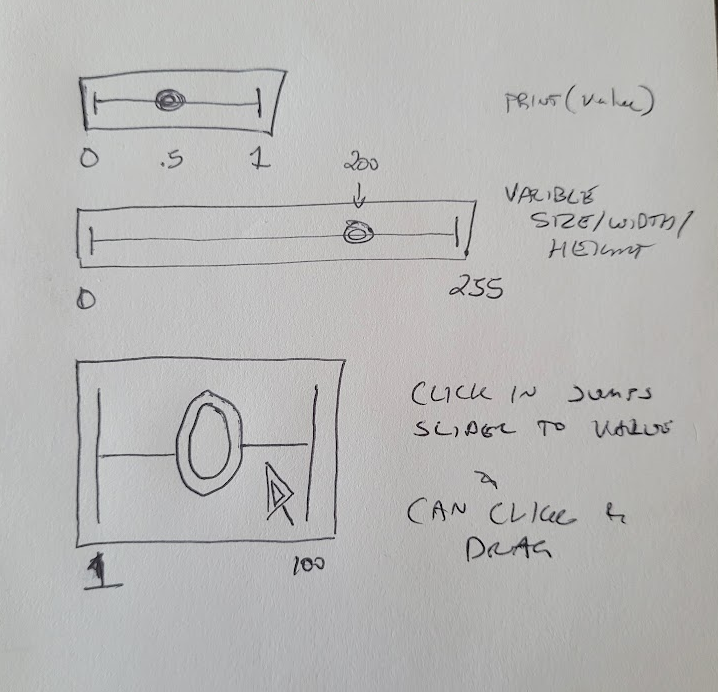 0 .5 1
PRINT(value)
200
VARIBLE
SIZE/WIDTH/
HEIGHT
0 255
CLICK IN JUMPS
SLIDER TO VALUE
&
CAN CLICK &
DRAG
1 100